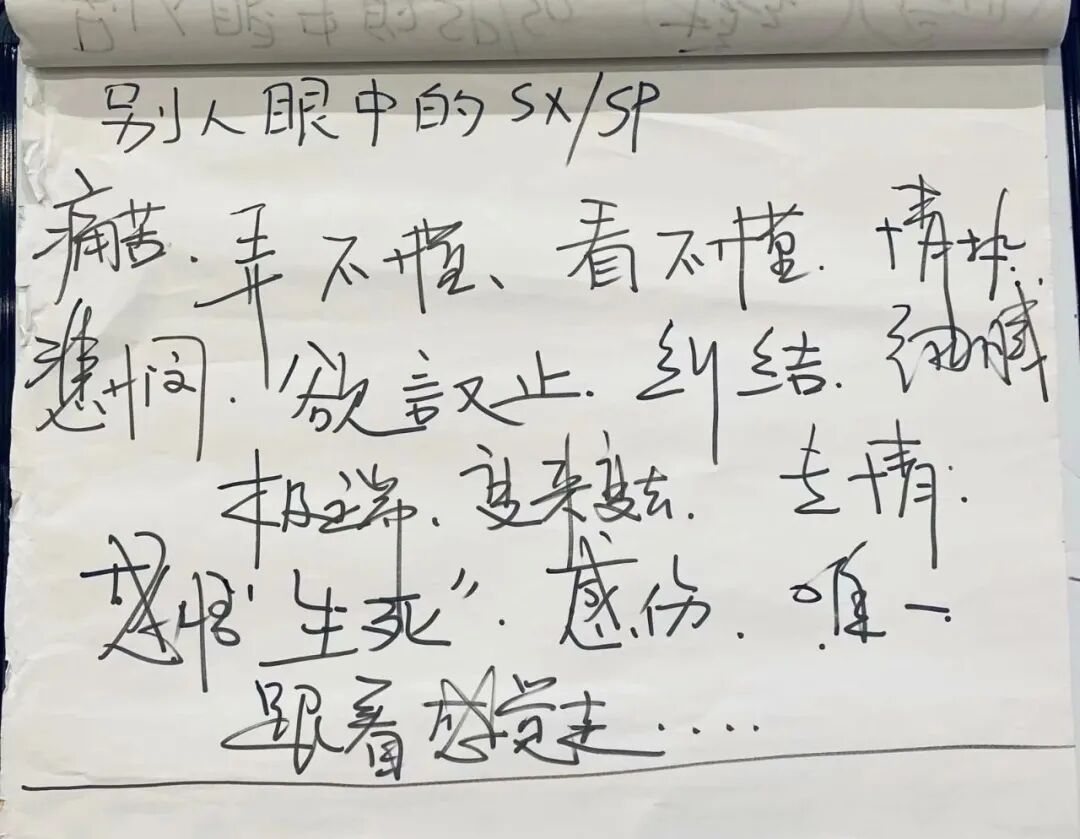 别人眼中的SX/SP
痛苦、弄不懂、看不懂、情执、
懑闷、欲言又止、纠结、细腻
极端、变来变去、专情、
感悟“生死”、感伤、唯一
跟着感觉走·····